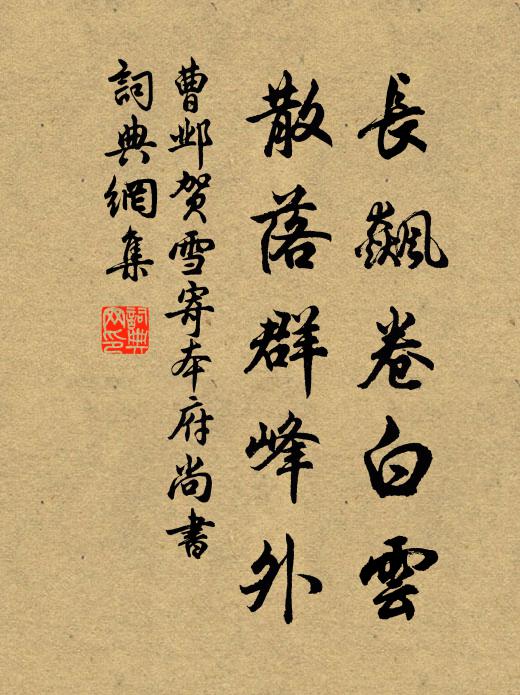 長飆卷白雲
散落群峰外
曹邺贺雪寄本府尚書
詞典網集
詞典网印